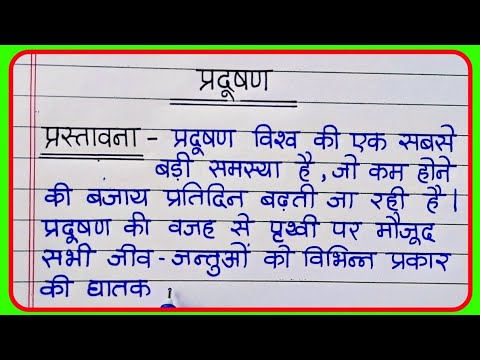 प्रदूषण
प्रस्तावना - प्रदूषण विश्व की एक सबसे
बड़ी समस्या है, जो कम होने
की बंजाय प्रतिदिन बढ़ती जा रही है।
प्रदूषण की वजह से पृथ्वी पर मौजूद
सभी जीव-जन्तुओं को विभिन्न प्रकार
की घातक